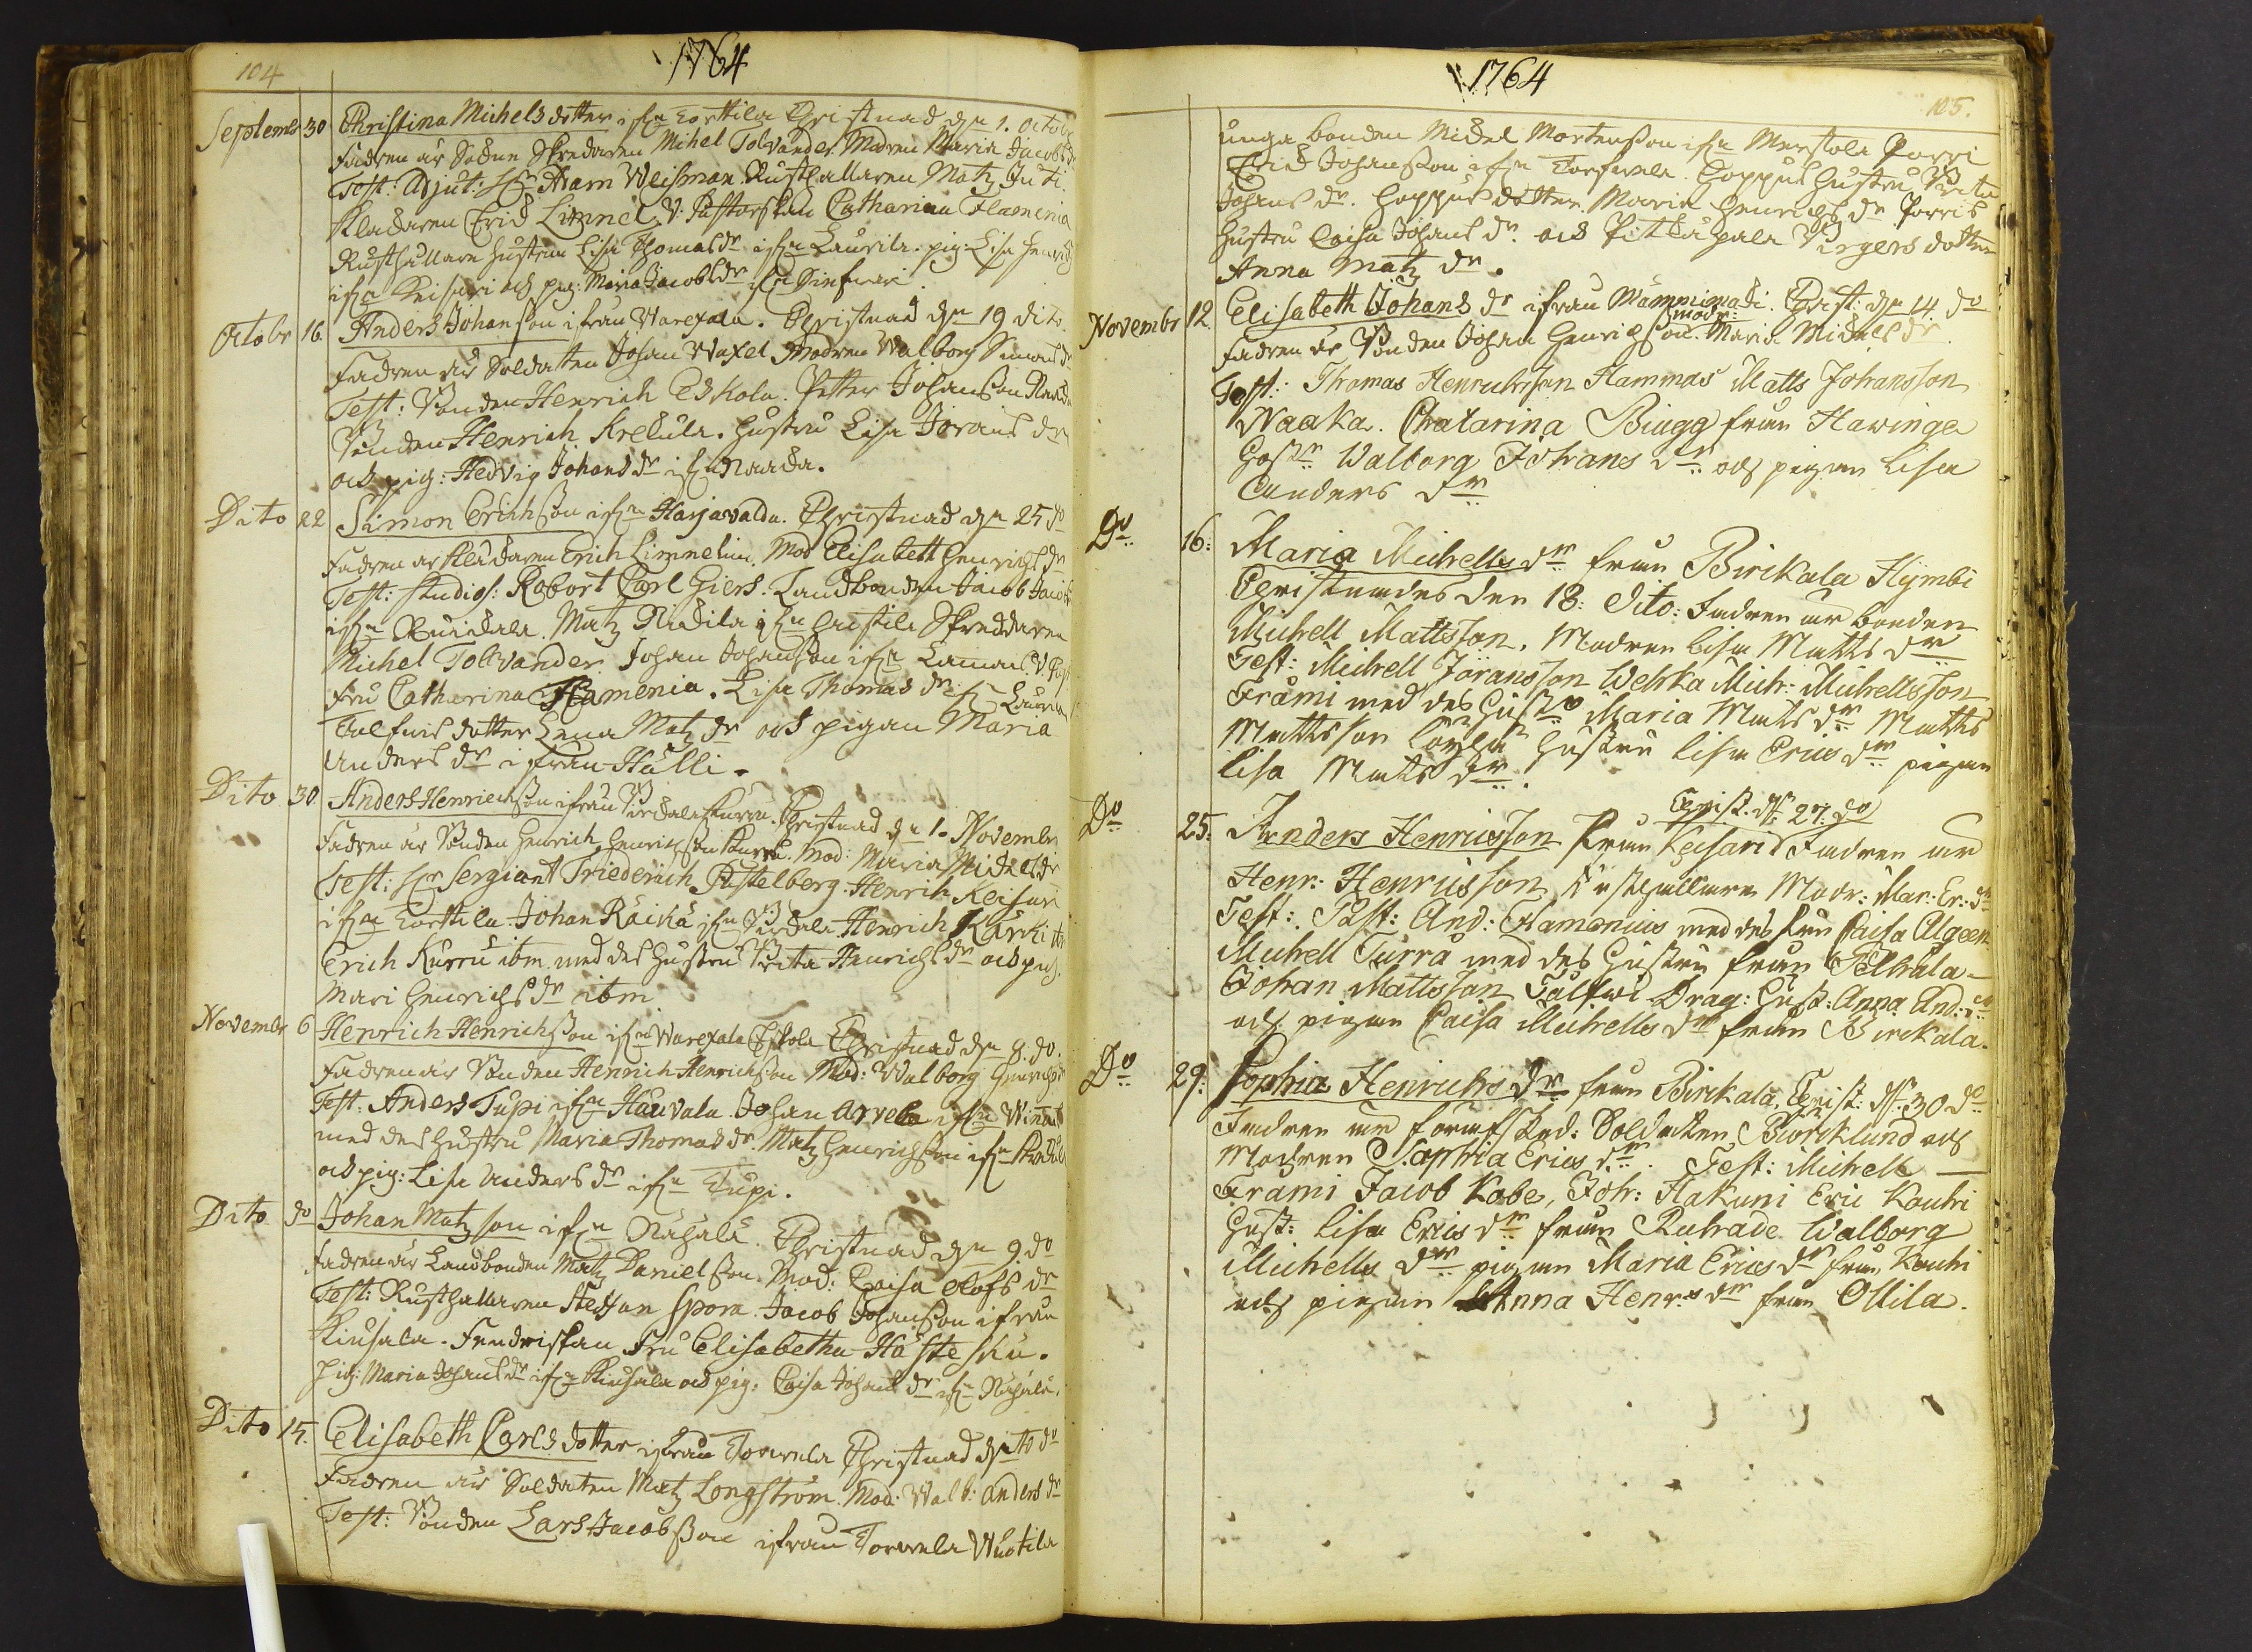 104
1764
Septembr 30 Christina Michels dotter ifrn Torttila Christnad dn 1. Octobr
Fadren är Sadne Skredaren Michel Tolvander Modren Maria Jacobs dr
Test: Adjut: Hr Adam Weisman Rusthallaren Matz Juti.
Kladaren Erich Limnel. V: Pastorskan Catharina Flamenia
Rusthallare hustrun Lisa Thomas dr ifrn Laurila. pig: Lisa Henrichs
ifrn Keisari och pig: Maria Jacobs dr ifrn
Octobr 16. Anders Johansson ifrån Warexala. Christnad dn 19 dito
Fadren är Soldatten Johan Waxel Modren Walborg Simons dr
Test: Bonden Henrich Eskola. Petter Johansson
Bonden Henrich Krekula. hustru Lisa Jörans dr
och pig: Hedvig Johans dr ifrn Naacka.
Dito 22 Simon Erichsson ifrn Harjavalda. Christnad dn 25 do
Fadren är Kladaren Erich Limnelius. Mod Elisabett Henrichs dr
Test: Studios: Robort Carl Giers. Landbonden Jacob Jacobs
ifrn Matz ifrn Skreddaren
Michel Tolvander Johan Johansson ifrn Lammais V. Past
fru Catharina Flamenia. Lisa Thomas dr ifrn Laurila
dotter Lena Matz dr och pigan Maria
Anders dr ifrån Hälli.
Dito 30 Anders Henrichsson ifrån Pirckala Kurru. Christnad dn 1. November
Fadren är Bonden Henrich Henrichsson Kurru. Mod: Maria Michels dr
Test: Hr Sergiant Friederich Pistelberg. Henrich Keisari
ifrn Torttila Johan Räickä ifrn Pirckala Henrich Kärcki
Erich Kurru ibm med des hustru Brita Henrichs dr och pig.
Mari Henrichs dr ibm
Novembr 6 Henrich Henrichsson ifrn Warexala Eskola Christnad dn 8. do.
Fadren är Bonden Henrich Henrichsson Mod: Walborg Henrichs dr
Test: Anders Tupi ifrn Hauvala. Johan Arvela ifrn
med des hustru Maria Thomas dr. Matz Henrichsson ifrn
och pig: Lisa Anders dr ifrn Tupi.
Dito do Johan Matzson ifrn Nähälä. Christnad dn 9 do
Fadren är Landbonden Matz Danielsson. Mod: Caisa Olofs dr
Test: Rusthallaren Staffan Spora. Jacob Johansson ifrån
Kiusala. Fendriskan Fru Elisabetha Hästesku.
Pig: Maria Johans dr ifrn Kiusala och pig: Caisa Johans dr ifrn Nähälä.
Dito 15. Elisabeth Carls dotter ifrån Torvela Christnad dito do
Fadren är Soldaten Matz Longström. Mod: Walb: Anders dr
Test: Bonden Lars Jacobsson ifrån Torvela Wuotila
1764
105.
unga bonden Michel Mortensson ifrn Merstola Porri
Erich Johansson ifrn Torfvela. Hoppus hustru Brita
Johans dr. Hoppus dotter Maria Henrichs dr Porris
hustru Caisa Johans dr. och Pitkäpala Birgers dotter
Anna Matz dr.
Novembr 12. Elisabeth Johans dr ifrån Mämmimäki. Christ: dn 14. do
Fadren är Bonden Johan Henrichsson. Modr: Maria Michels dr
Test: Thomas Henrichsson Hammas Matts Johansson
Naaka. Chatarina Biugg från Hawinga
Hustr Walborg Johans dr och pigan Lisa
Anders dr
Do 16: Maria Michells dr från Birckala Hÿmbi
Christnades den 18: Dito: Fadren är bonden
Michell Mattsson, Modren Lisa Matts dr
Test: Michell Jöransson Wehka Mich: Michellsson
Frami med des Hustr Maria Matts dr Matts
Mattsson Hustru Lisa Erics dr pigan
Lisa Matts dr.
Christ. d: 27. do
Do 25: Anders Henricsson från Keisari Fadren är
Henr: Henricsson Rusthållare Modr: Mar: Er: dr
Test: Past: And: Flamenius med des fru Caisa Algeen
Michell Turra med des Hustru från Pelhala –
Johan Mattsson Tulkwi Drag: Hust: Anna And: dr
och pigan Caisa Michells dr från Birckala.
Do 29: Sophia Henrichs dr från Birckala, Christ: d. 30 do
Fadren är Soldatten Biörcklund och
Modren Sophia Erics dr. Test: Michell —
Frami Jacob Kobe, Joh: Hakuni Eric Kouhi
Hust: Lisa Erics dr från Ruhade Walborg
Michells dr pigan Maria Erics dr från Kouhi
och pigan Anna Henrs dr från Ollila.